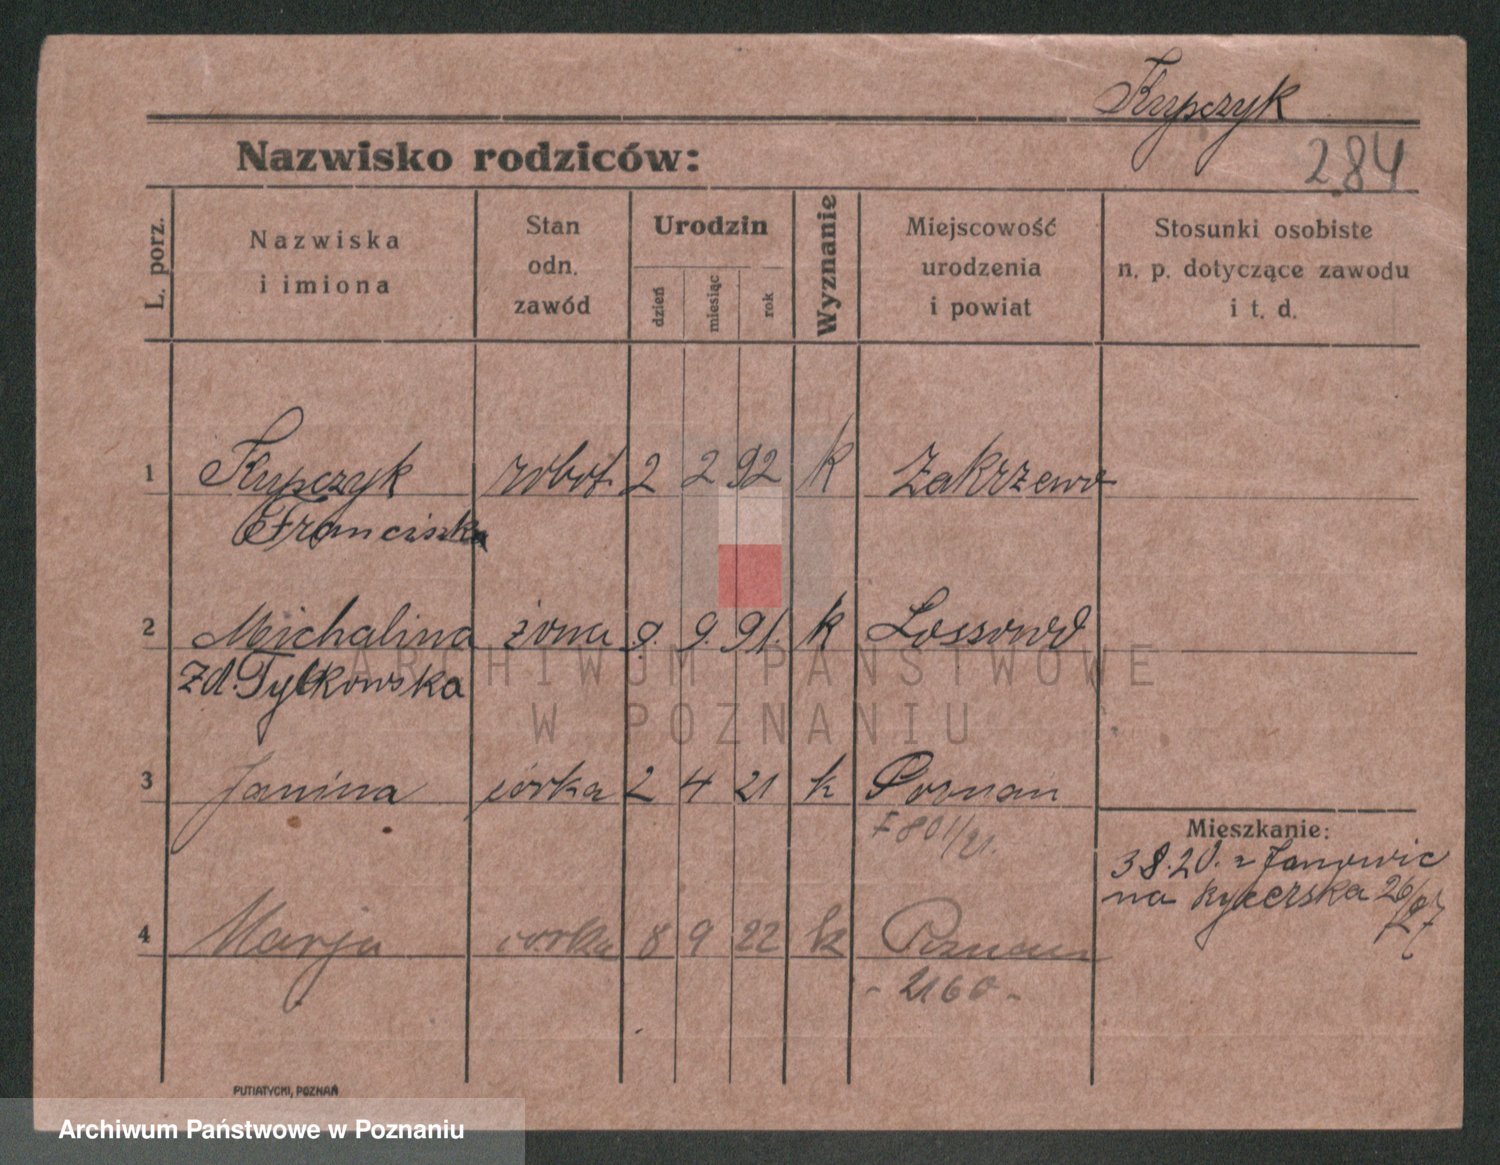 Krypczyk
284
Nazwisko rodziców:
L. porz.
Nazwiska
i imiona
Stan
odn.
zawód
Urodzin
dzień
miesiąc
rok
Wyznanie
Miejscowość
urodzenia
i powiat
Stosunki osobiste
n. p. dotyczące zawodu
i t. d.
1 Krypczyk robot. 2 2 92 k Zakrzewo
Franciszka
2 Michalina żona 9. 9. 91. k Lossowo
zd. Tylkowska
3 Janina córka 2 4 21 k Poznań
801/21.
Mieszkanie:
3 8. 20. z Janowic
na Rycerska 26/
4 Marja córka 8 9 22 k Poznań
- 2160 -
PUTIATYCKI, POZNAŃ
ARCHIWUM PAŃSTWOWE
W POZNANIU
Archiwum Państwowe w Poznaniu